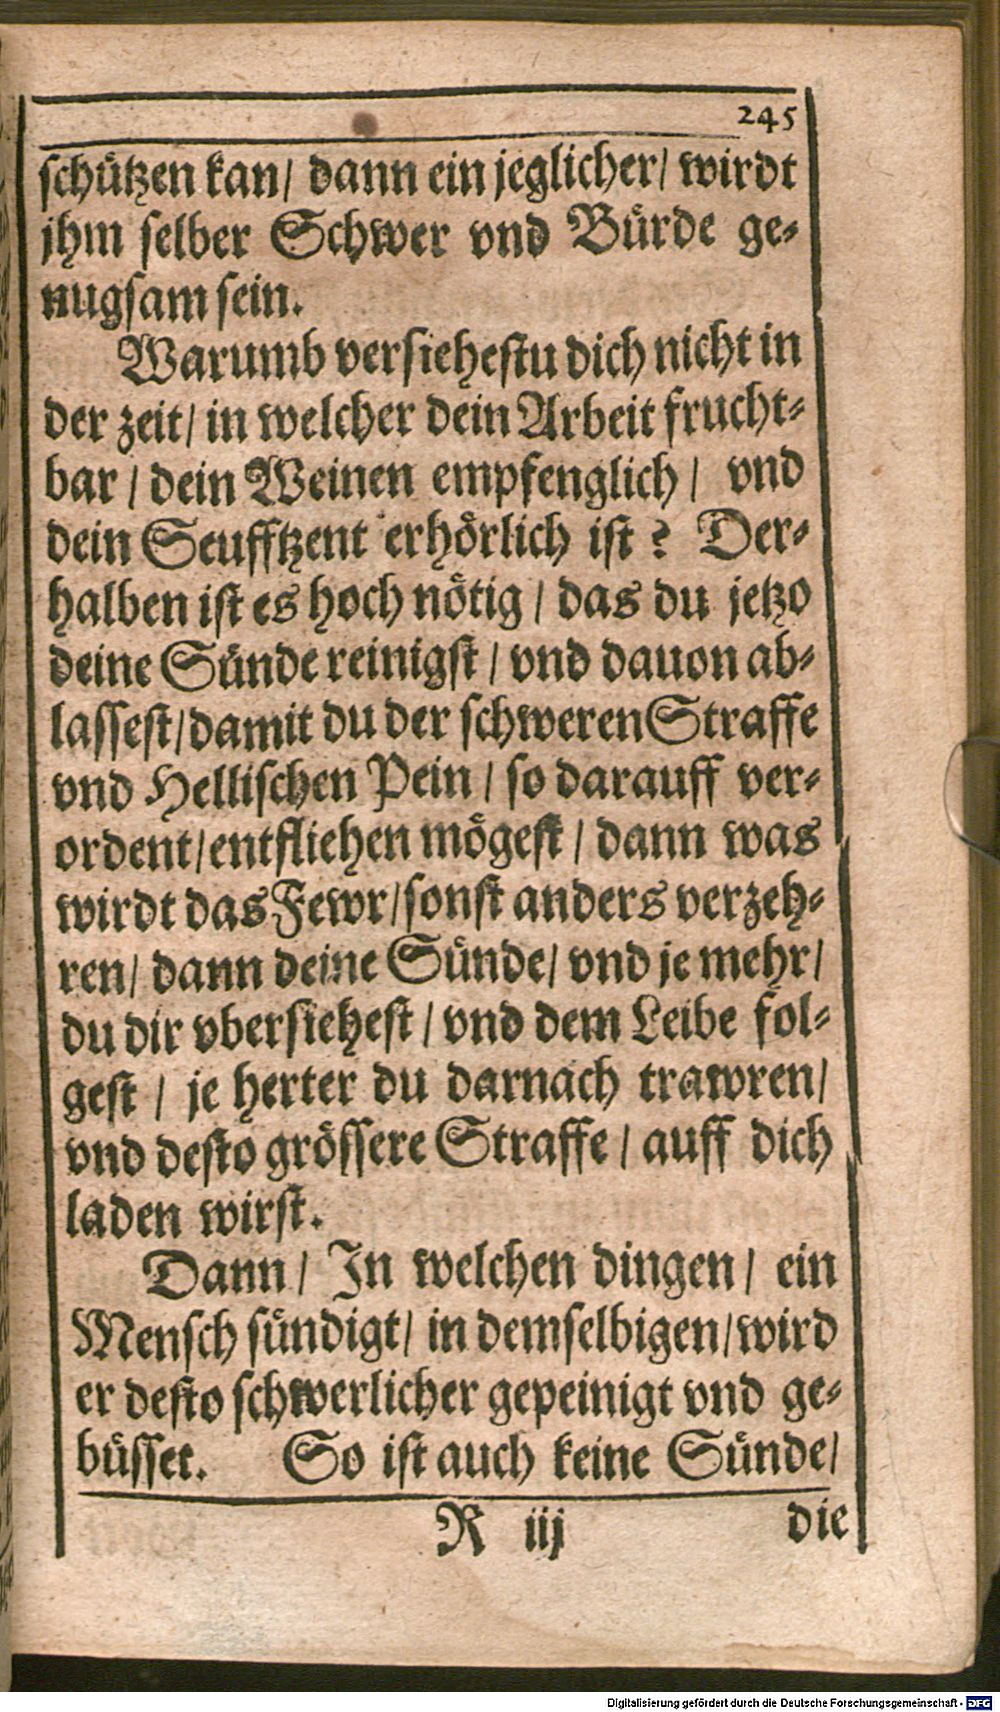 245
schützen kan/ dann ein jeglicher/ wirdt
jhm selber Schwer vnd Bürde ge-
nugsam sein.
Warumb versiehestu dich nicht in
der zeit/ in welcher dein Arbeit frucht-
bar / dein Weinen empfenglich / vnd
dein Seufftzent erhörlich ist ? Der-
halben ist es hoch nötig / das du jetzo
deine Sünde reinigst / vnd dauon ab-
lassest/damit du der schweren Straffe
vnd Hellischen Pein / so darauff ver-
ordent/entfliehen mögest / dann was
wirdt das Fewr/sonst anders verzeh-
ren/ dann deine Sünde/ vnd je mehr/
du dir vbersiehest / vnd dem Leibe fol-
gest / je herter du darnach trawren/
vnd desto grössere Straffe / auff dich
laden wirst.
Dann/ In welchen dingen/ ein
Mensch sündigt/ in demselbigen/wird
er desto schwerlicher gepeinigt vnd ge-
büsset. So ist auch keine Sünde/
R iij die
Digitalisierung gefördert durch die Deutsche Forschungsgemeinschaft - DFG